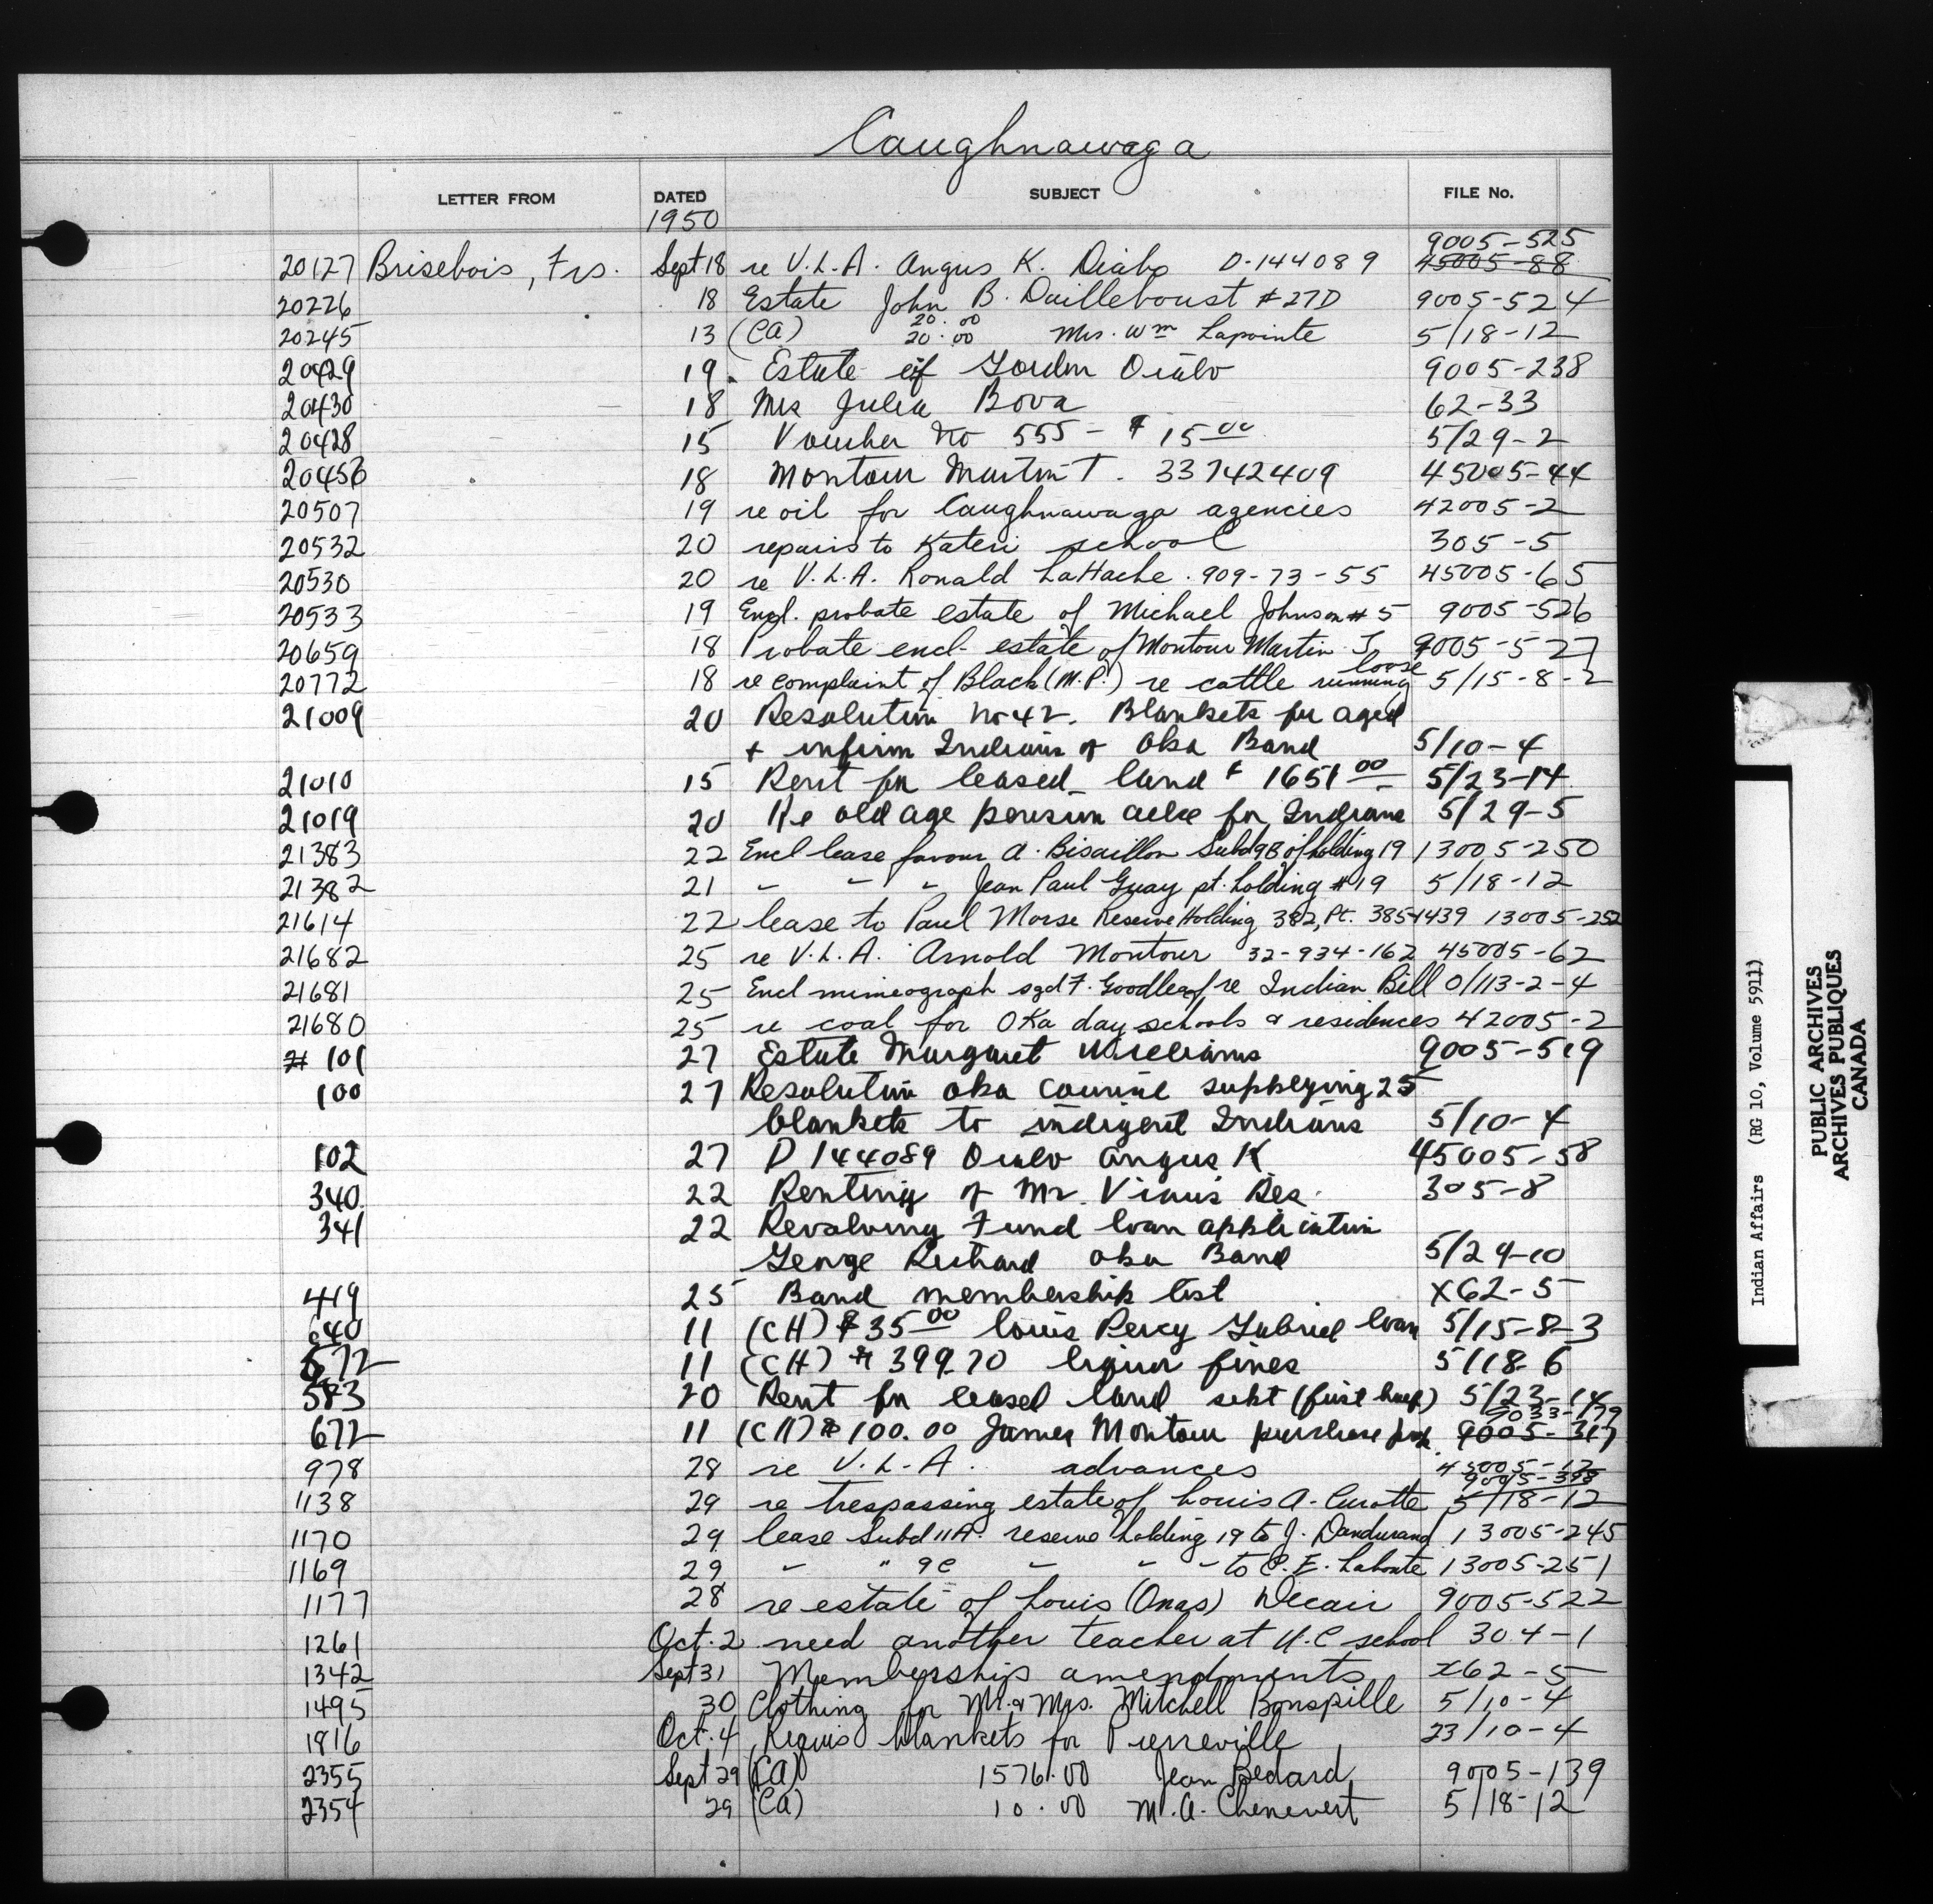 Caughnawaga
LETTER FROM DATED SUBJECT FILE No.
1950
9005-525
20127 Brisebois, Frs. Sept 18 re V.L.A. Angus K. Diabo D-144089 45005-88
20226 18 Estate John B. Dailleboust #27D 9005-524
20.00
20245 13 (CA) 20.00 Mrs. Wm Lapointe 5/18-12
20429 19 Estate of Gordon Diabo 9005-238
20430 18 Mrs Julia Bova 62-33
20428 15 Voucher No 555 - $15.00 5/29-2
20456 18 Montour Martin T. 33742409 45005-44
20507 19 re oil for Caughnawaga agencies 42005-2
20532 20 repairs to Kateri school 305-5
20530 20 re V.L.A. Ronald LaHache. 909-73-55 45005-65
20533 19 Encl. probate estate of Michael Johnson #5 9005-526
20659 18 Probate encl- estate of Montour Martin J 9005-527
loose
20772 18 re complaint of Black (M.P.) re cattle running 5/15-8-2
21009 20 Resolution No 42. Blankets for aged
+ infirm Indians of Oka Band 5/10-4
21010 15 Rent for leased land $1651.00 5/23-14
21019 20 Re old age pension for Indians 5/29-5
21383 22 Encl lease favour A. Bisaillon Subd 9B of holding 19 13005-250
21382 21 " " " Jean Paul Guay pt. holding #19 5/18-12
21614 22 lease to Paul Morse Reserve Holding 382, Pt. 385+439 13005-252
21682 25 re V.L.A. Arnold Montour 32-934-162 45005-62
21681 25 Encl mimeograph sgd F. Goodleaf re Indian Bill 0/113-2-4
21680 25 re coal for Oka day schools & residences 42005-2
101 27 Estate Margaret Williams 9005-519
100 27 Resolution Oka Council supplying 25
blankets to indigent Indians 5/10-4
102 27 D 144089 Diabo Angus K 45005-58
340 22 Renting of Mr. Res. 305-8
341 22 Revolving Fund loan application
George Richard Oka Band 5/29-10
419 25 Band membership list X62-5
640 11 (CH) $35.00 Louis Percy Gabriel loan 5/15-8-3
672 11 (CH) $399.70 liquor fines 5/18-6
583 20 Rent for leased land sept (first half) 5/23-14
9033-179
672 11 (CH) $100.00 James Montour purchase 9005-317
978 28 re V.L.A. advances 45005-12
9005-398
1138 29 re trespassing estate of Louis A. Curotte 5/18-12
1170 29 lease Subd 11A. reserve holding 19 to J. Dandurand 13005-245
1169 29 " " 9C " " " to C.E. Labonte 13005-251
1177 28 re estate of Louis (Onas) Decair 9005-522
1261 Oct. 2 need another teacher at U.C school 304-1
1342 Sept 31 Membership amendments X62-5
1495 30 Clothing for Mr. & Mrs. Mitchell Bonspille 5/10-4
1816 Oct. 4 Requis blankets for Pierreville 23/10-4
2355 Sept 29 (CA) 1576.00 Jean Bedard 9005-139
2354 29 (CA) 10.00 M.A. Chenevert 5/18-12
Indian Affairs (RG 10, Volume 5911)
PUBLIC ARCHIVES
ARCHIVES PUBLIQUES
CANADA